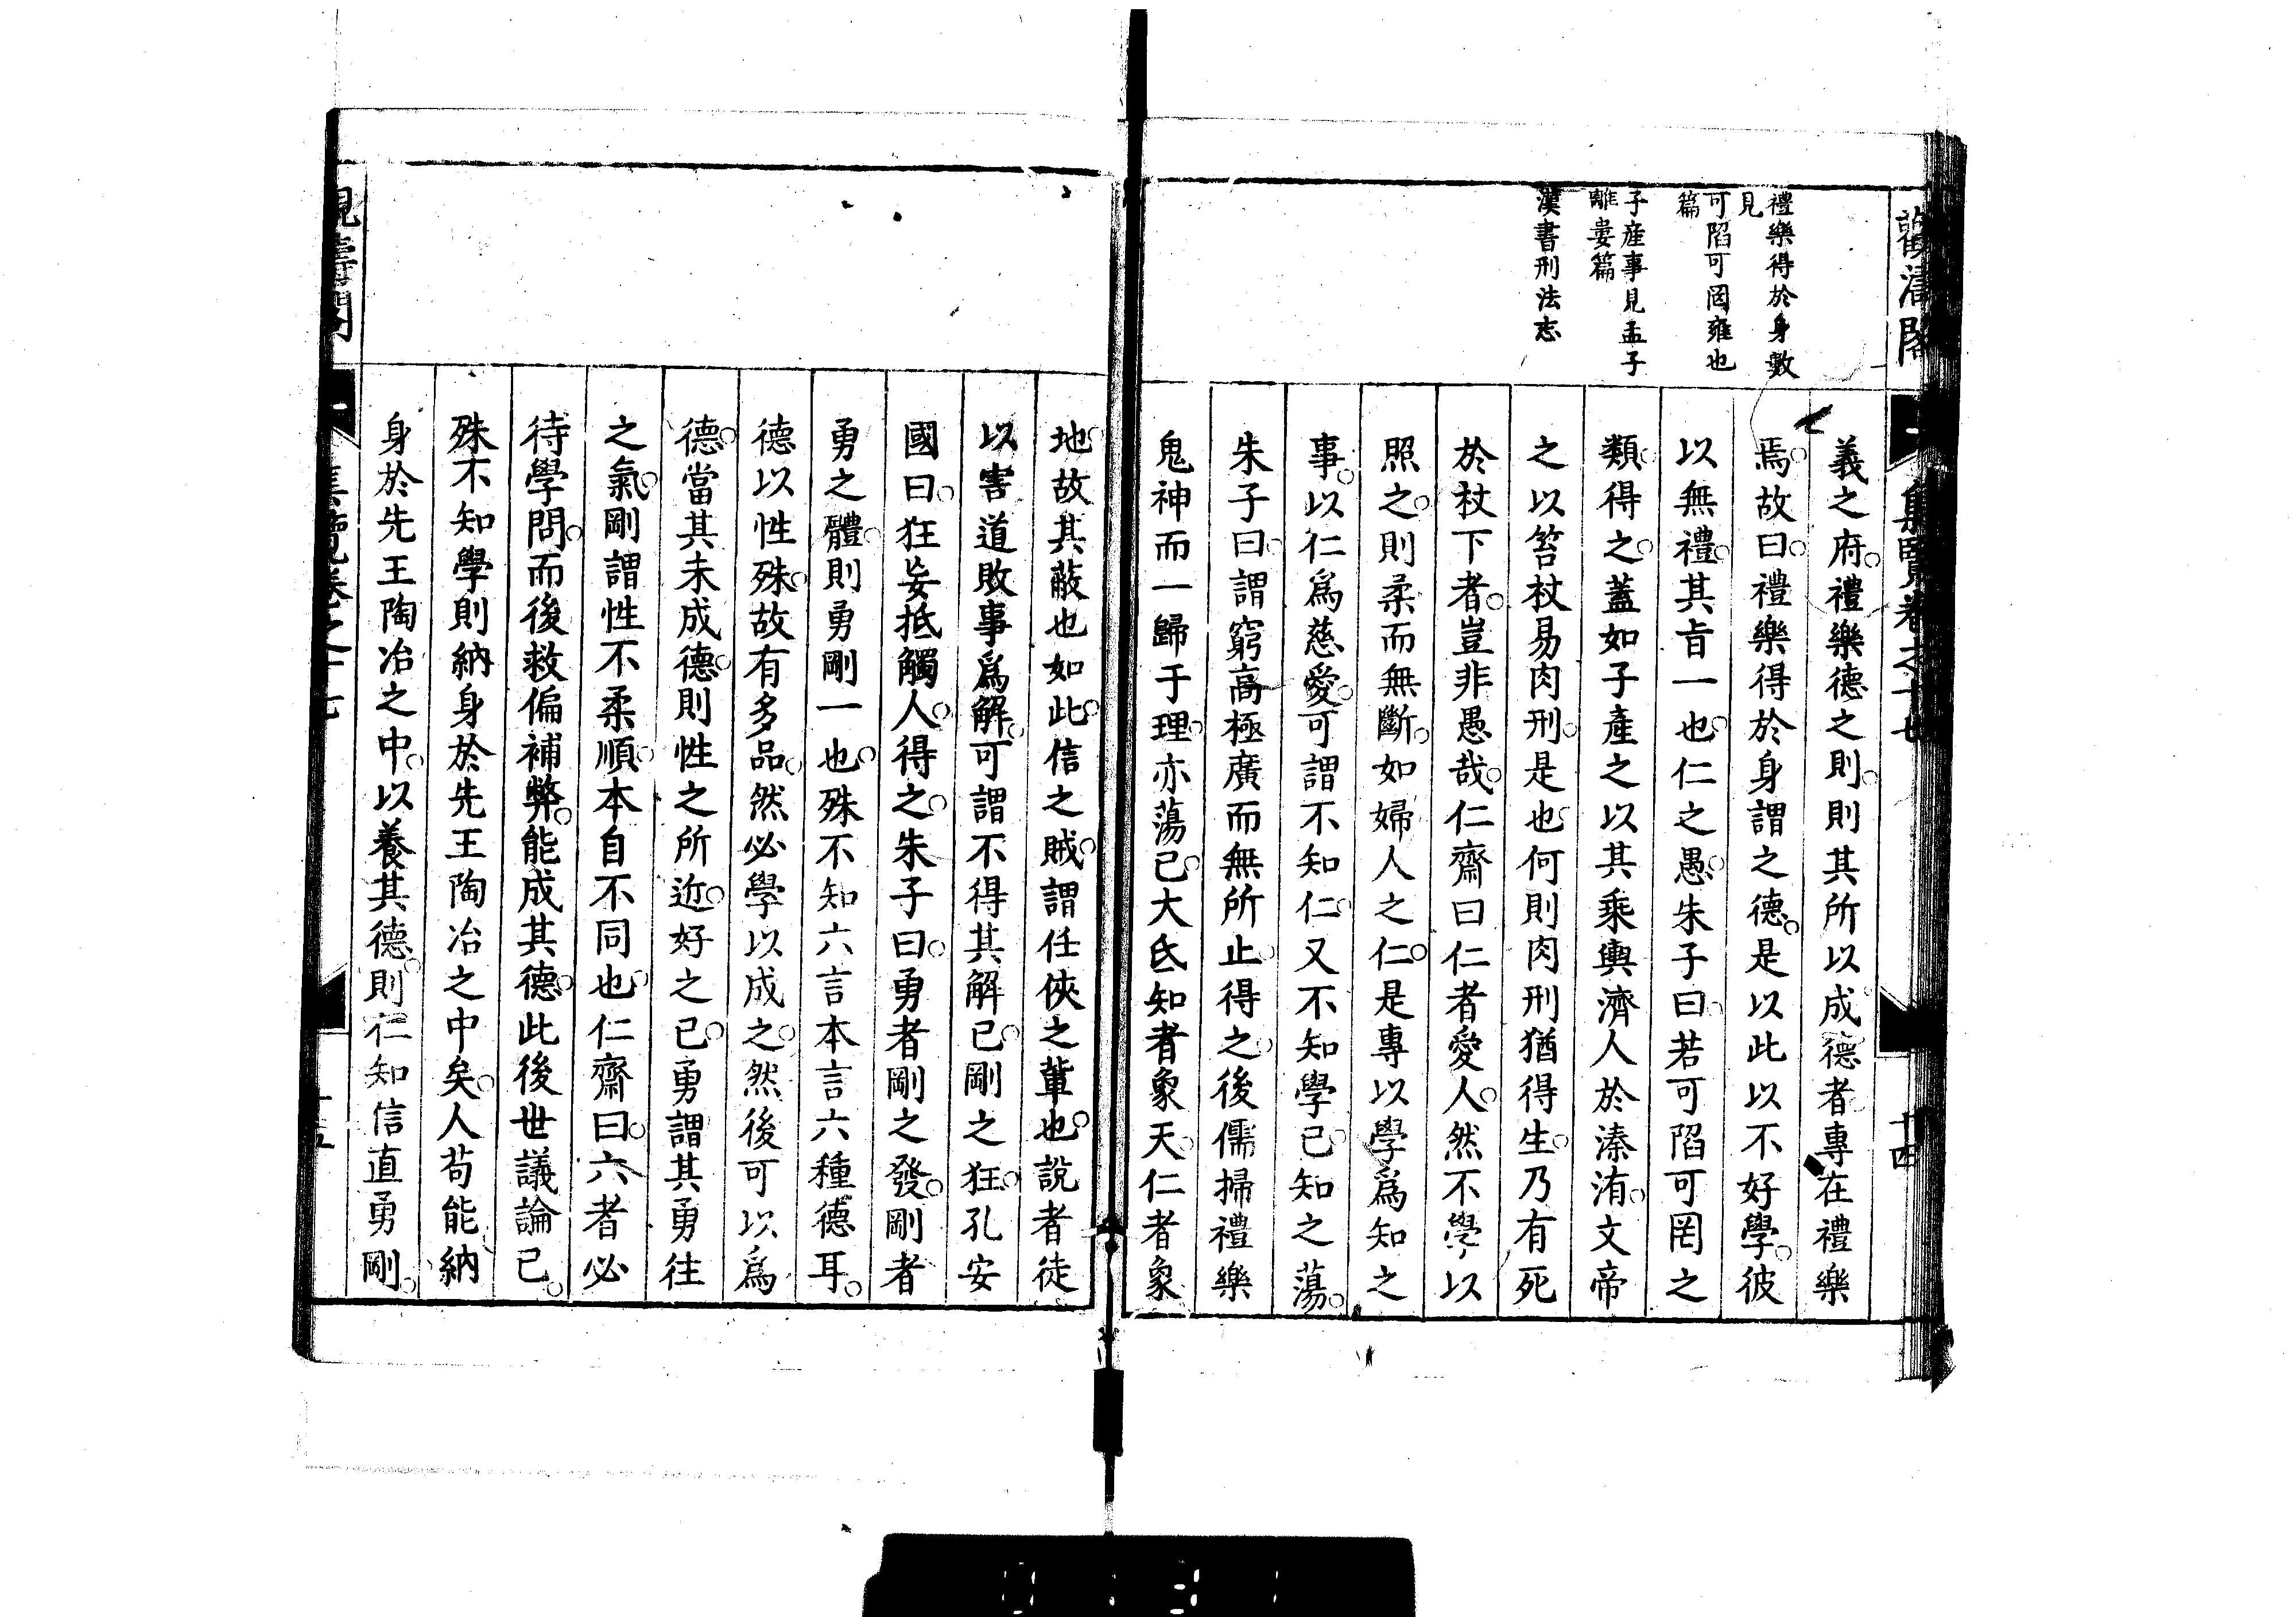 禮樂得於身數
見
可陷可罔雍也
篇
子産事見孟子
離婁篇
漢書刑法志
義之府禮樂德之則則其所以成德者專在禮樂
焉故曰禮樂得於身謂之德是以此以不好學彼
以無禮其旨一也仁之愚朱子曰若可陷可罔之
類得之蓋如子產之以其乘輿濟人於溱洧文帝
之以笞杖易肉刑是也何則肉刑猶得生乃有死
於杖下者豈非愚哉仁齋曰仁者愛人然不學以
照之則柔而無斷如婦人之仁是專以學爲知之
事以仁爲慈愛可謂不知仁又不知學已知之蕩
朱子曰謂窮高極廣而無所止得之後儒掃禮樂
鬼神而一歸于理亦蕩已大氐知者象天仁者象
地故其蔽也如此信之賊謂任俠之輩也說者徒
以害道敗事爲解可謂不得其解已剛之狂孔安
國曰狂妄抵觸人得之朱子曰勇者剛之發剛者
勇之體則勇剛一也殊不知六言本言六種德耳
德以性殊故有多品然必學以成之然後可以爲
德當其未成德則性之所近好之已勇謂其勇往
之氣剛謂性不柔順本自不同也仁齋曰六者必
待學問而後救偏補弊能成其德此後世議論已
殊不知學則納身於先王陶冶之中矣人苟能納
身於先王陶冶之中以養其德則仁知信直勇剛